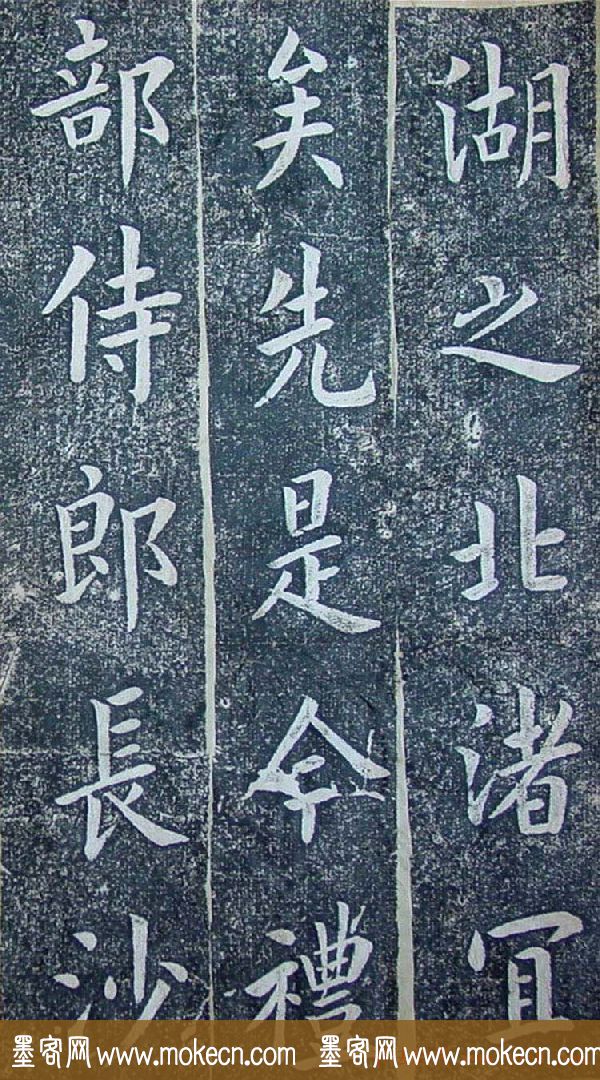 湖之北渚宜
矣先是今禮
部侍郎長沙
墨客网 www.mokecn.com 墨客网 www.mokecn.com